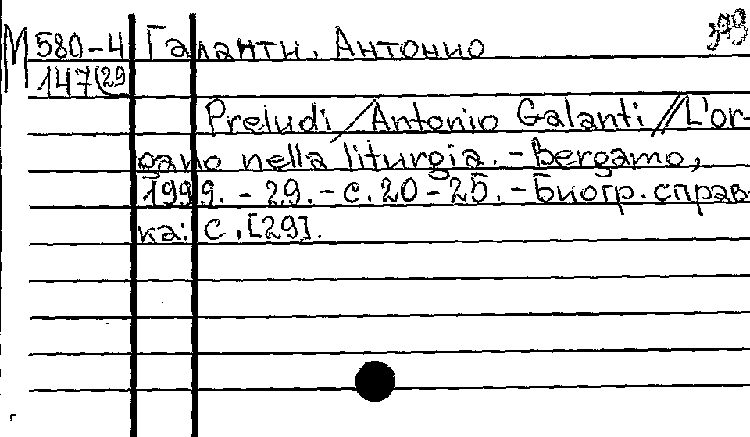 М 580-4 Галанти, Антонио
147(29
Preludi / Antonio Galanti // L'or-
gano nella liturgia. - Bergamo,
1999. - 29. - с. 20-25. - Биогр. справ-
ка: с. [29].